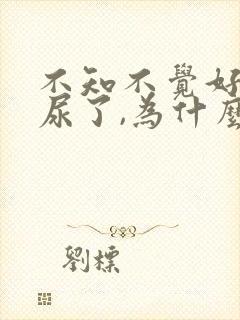 不知不覺好
尿了,為什麼
劉標